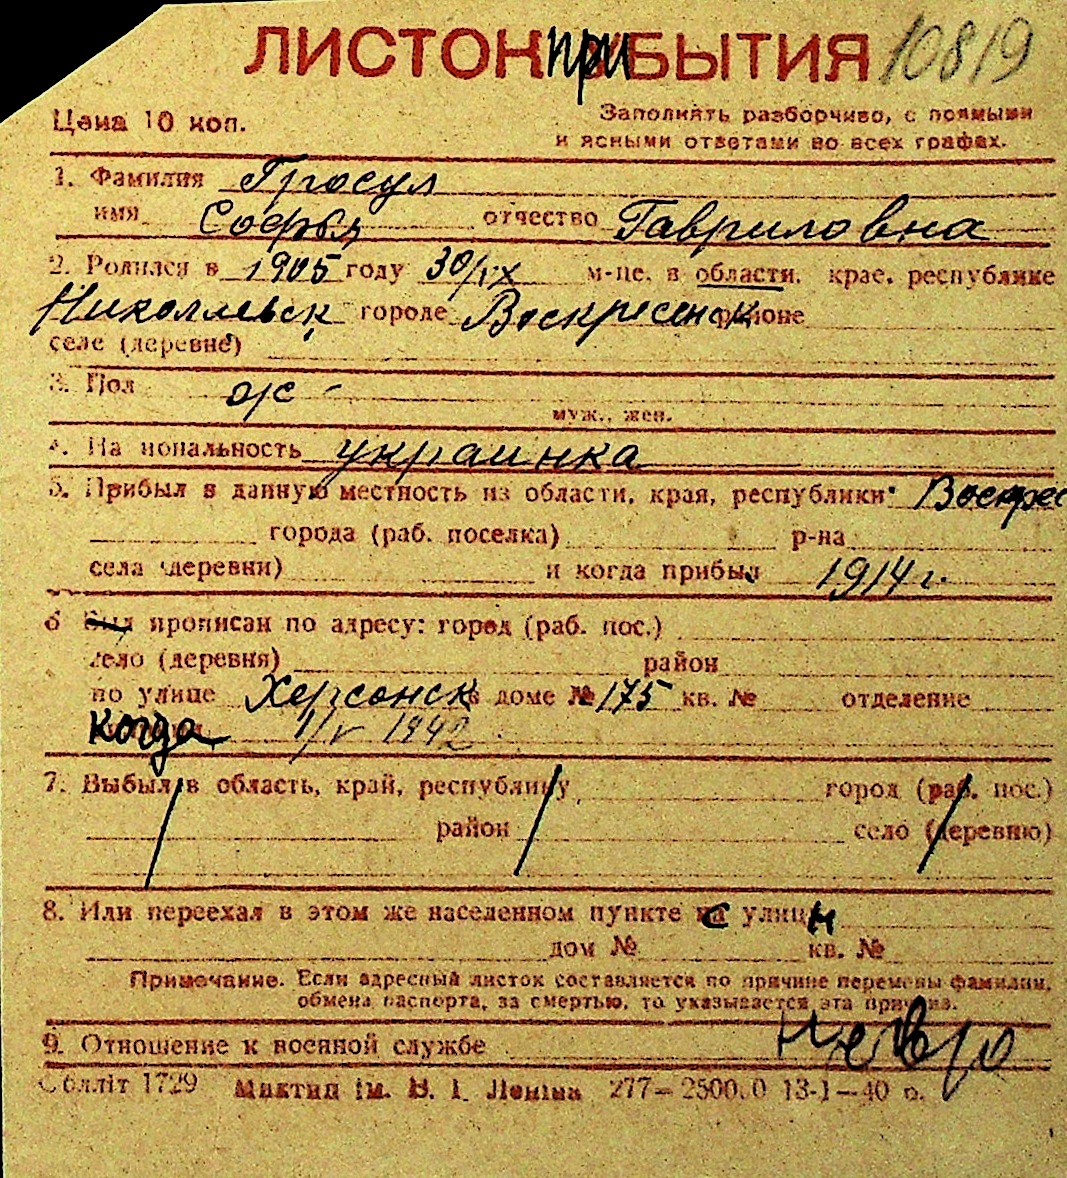 ЛИСТОК при БЫТИЯ 10819
Цена 10 коп.
Заполнять разборчиво, с прямыми
и ясными ответами во всех графах.
1. Фамилия Гросул
имя Софья отчество Гавриловна
2. Родился в 1905 году 30/IX м-це, в области, крае, республике
Николаевск городе Воскресенск районе
селе (деревне)
3. Пол ж
муж., жен.
4. На иональность украинка
5. Прибыл в данную местность из области, края, республики Воскрес
города (раб. поселка) р-на
села (деревни) и когда прибыл 1914 г.
6 Был прописан по адресу: город (раб. пос.)
село (деревня) район
по улице Херсонск в доме № 175 кв. № отделение
когда 1/V 1942
7. Выбыл в область, край, республику город (раб. пос.)
район село (деревню)
8. Или переехал в этом же населенном пункте с улицы
дом № кв. №
Примечание. Если адресный листок составляется по причине перемены фамилии,
обмена паспорта, за смертью, то указывается эта причина.
9. Отношение к военной службе не в/о
Облліт 1729 Миктип ім. В. І. Леніна 277—25000 13-1—40 р.